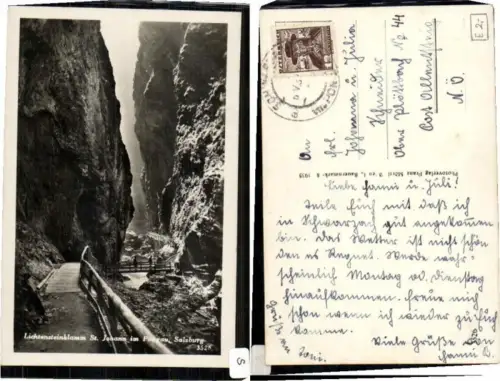 Liechtensteinklamm St. Johann im Pongau, Salzburg
S
E 2.-
An
Frl.
Johanna u. Julia
Schneider
Ober Plöttbach No 44
Post Allentsteig
N.Ö.
Liebe Hanni u. Juli!
Teile Euch mit daß ich
in Schwarzach gut angekommen
bin. Das Wetter ist nicht schön
denn es Regnet. Werde wahr-
scheinlich Montag od. Dienstag
hinaufkommen. Freue mich
schon wenn ich wieder zu Euch
komme.
Viele Grüße von
Hanni